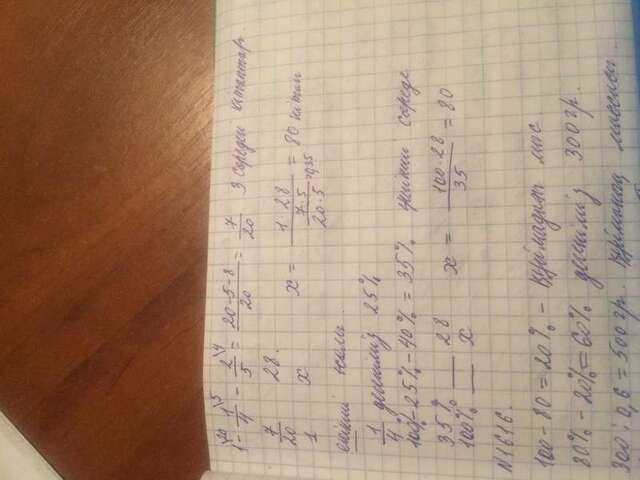 1\20 - 1/4\5 - 2/5\4 = 20-5-8/20 = 7/20 3 сөредегі кітаптар.
7/20 28.
1 x x = 1·28 / (7·5/20·5 = 0,35) = 80 кітап
екінші жолы.
1/4 дегеніміз 25%
100% - 25% - 40% = 35% үшінші сөреде
35% __ 28
100% __ x x = 100·28/35 = 80
N1616.
100 - 80 = 20% - құймадағы мыс.
80% - 20% = 60% дегеніміз 300гр.
300 : 0,6 = 500гр. құйманың массасы